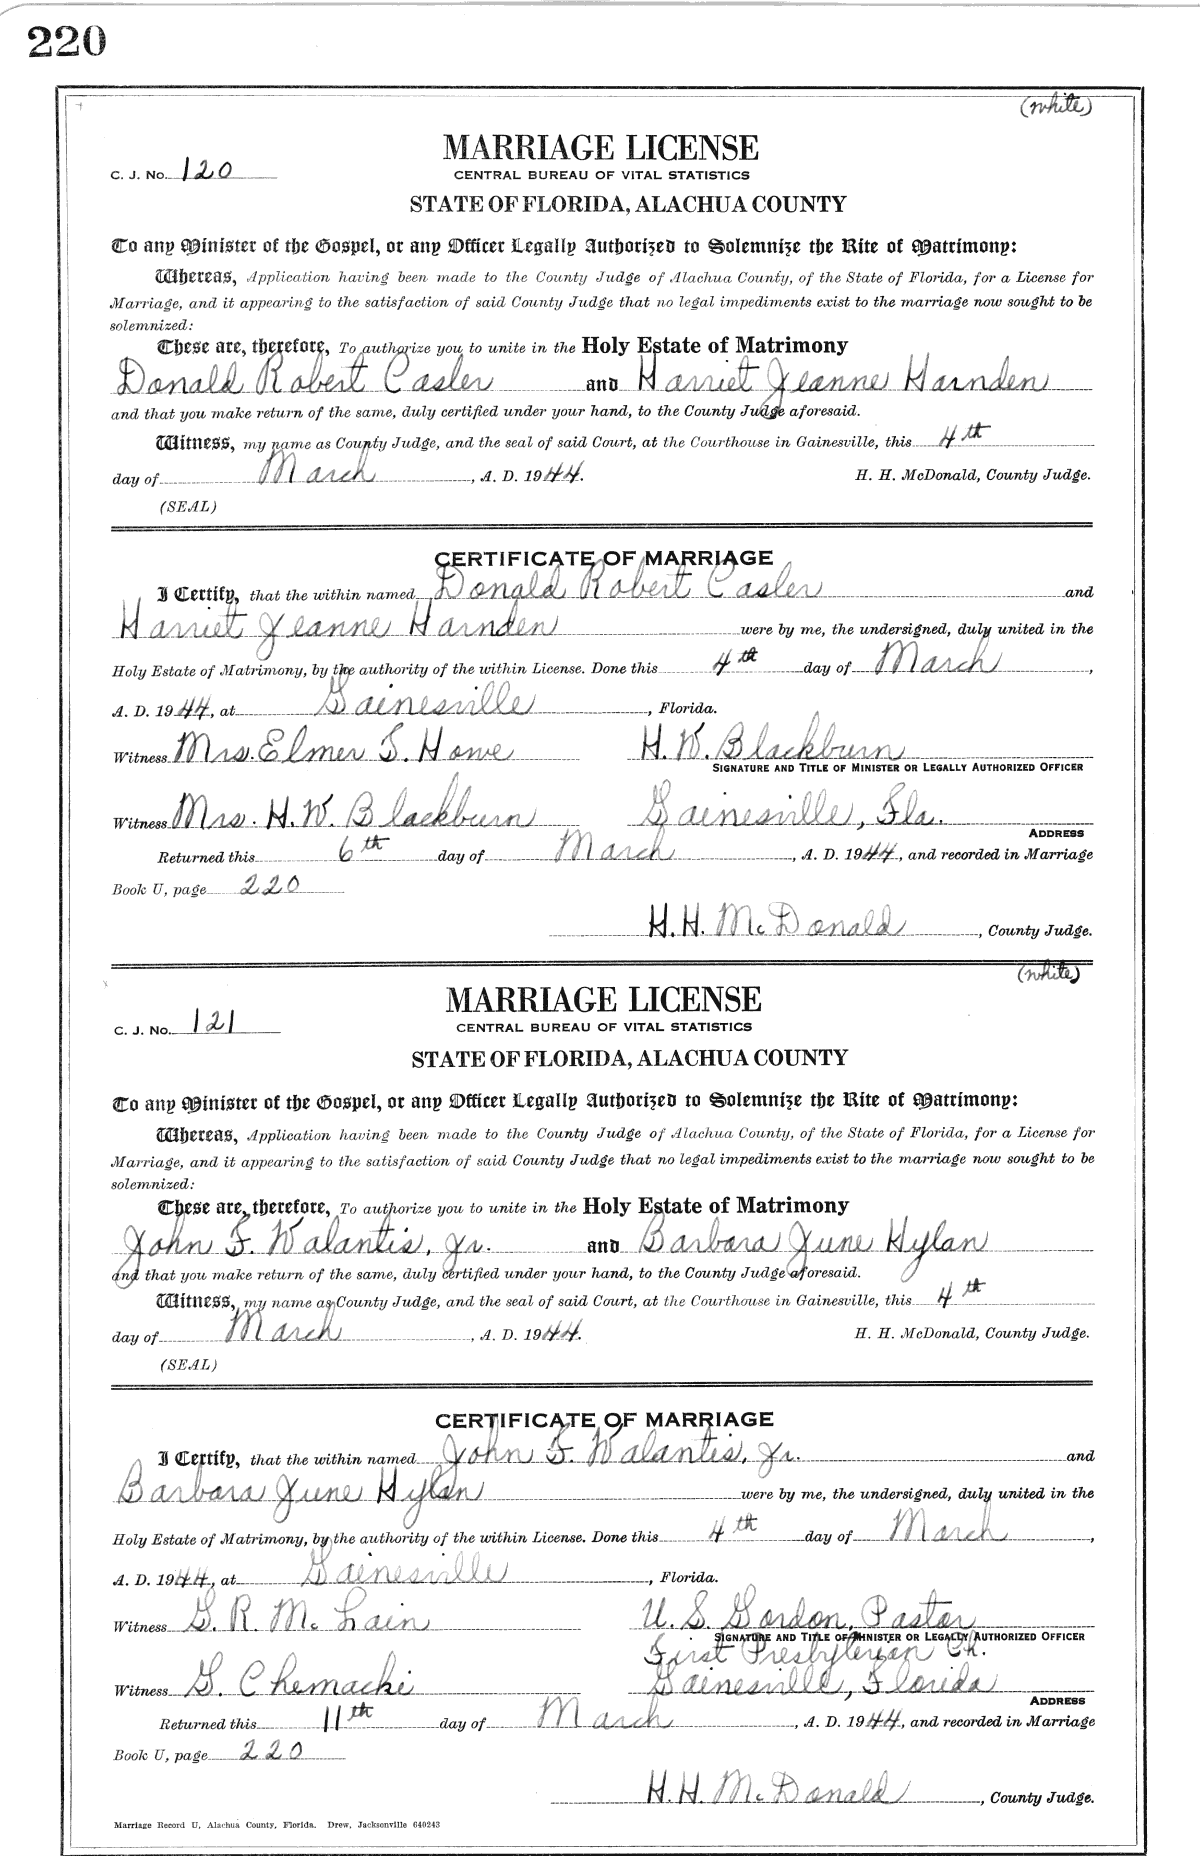 220
(white)
MARRIAGE LICENSE
C. J. No. 120
CENTRAL BUREAU OF VITAL STATISTICS
STATE OF FLORIDA, ALACHUA COUNTY
To any Minister of the Gospel, or any Officer Legally Authorized to Solemnize the Rite of Matrimony:
Whereas, Application having been made to the County Judge of Alachua County, of the State of Florida, for a License for
Marriage, and it appearing to the satisfaction of said County Judge that no legal impediments exist to the marriage now sought to be
solemnized:
These are, therefore, To authorize you to unite in the Holy Estate of Matrimony
Donald Robert Casler and Harriet Jeanne Harnden
and that you make return of the same, duly certified under your hand, to the County Judge aforesaid.
Witness, my name as County Judge, and the seal of said Court, at the Courthouse in Gainesville, this 4th
day of March, A. D. 1944. H. H. McDonald, County Judge.
(SEAL)
CERTIFICATE OF MARRIAGE
I Certify, that the within named Donald Robert Casler and
Harriet Jeanne Harnden were by me, the undersigned, duly united in the
Holy Estate of Matrimony, by the authority of the within License. Done this 4th day of March,
A. D. 1944, at Gainesville, Florida.
Witness Mrs. Elmer S. Howe H. W. Blackburn
SIGNATURE AND TITLE OF MINISTER OR LEGALLY AUTHORIZED OFFICER
Witness Mrs. H. W. Blackburn Gainesville, Fla.
ADDRESS
Returned this 6th day of March, A. D. 1944, and recorded in Marriage
Book U, page 220
H. H. McDonald, County Judge.
(white)
MARRIAGE LICENSE
C. J. No. 121
CENTRAL BUREAU OF VITAL STATISTICS
STATE OF FLORIDA, ALACHUA COUNTY
To any Minister of the Gospel, or any Officer Legally Authorized to Solemnize the Rite of Matrimony:
Whereas, Application having been made to the County Judge of Alachua County, of the State of Florida, for a License for
Marriage, and it appearing to the satisfaction of said County Judge that no legal impediments exist to the marriage now sought to be
solemnized:
These are, therefore, To authorize you to unite in the Holy Estate of Matrimony
John F. Walantis, Jr. and Barbara June Hylan
and that you make return of the same, duly certified under your hand, to the County Judge aforesaid.
Witness, my name as County Judge, and the seal of said Court, at the Courthouse in Gainesville, this 4th
day of March, A. D. 1944. H. H. McDonald, County Judge.
(SEAL)
CERTIFICATE OF MARRIAGE
I Certify, that the within named John F. Walantis, Jr. and
Barbara June Hylan were by me, the undersigned, duly united in the
Holy Estate of Matrimony, by the authority of the within License. Done this 4th day of March,
A. D. 1944, at Gainesville, Florida.
Witness G. R. McLain U. S. Gordon, Pastor
SIGNATURE AND TITLE OF MINISTER OR LEGALLY AUTHORIZED OFFICER
First Presbyterian Ch.
Witness G. Chemacki Gainesville, Florida
ADDRESS
Returned this 11th day of March, A. D. 1944, and recorded in Marriage
Book U, page 220
H. H. McDonald, County Judge.
Marriage Record U, Alachua County, Florida. Drew, Jacksonville 640243